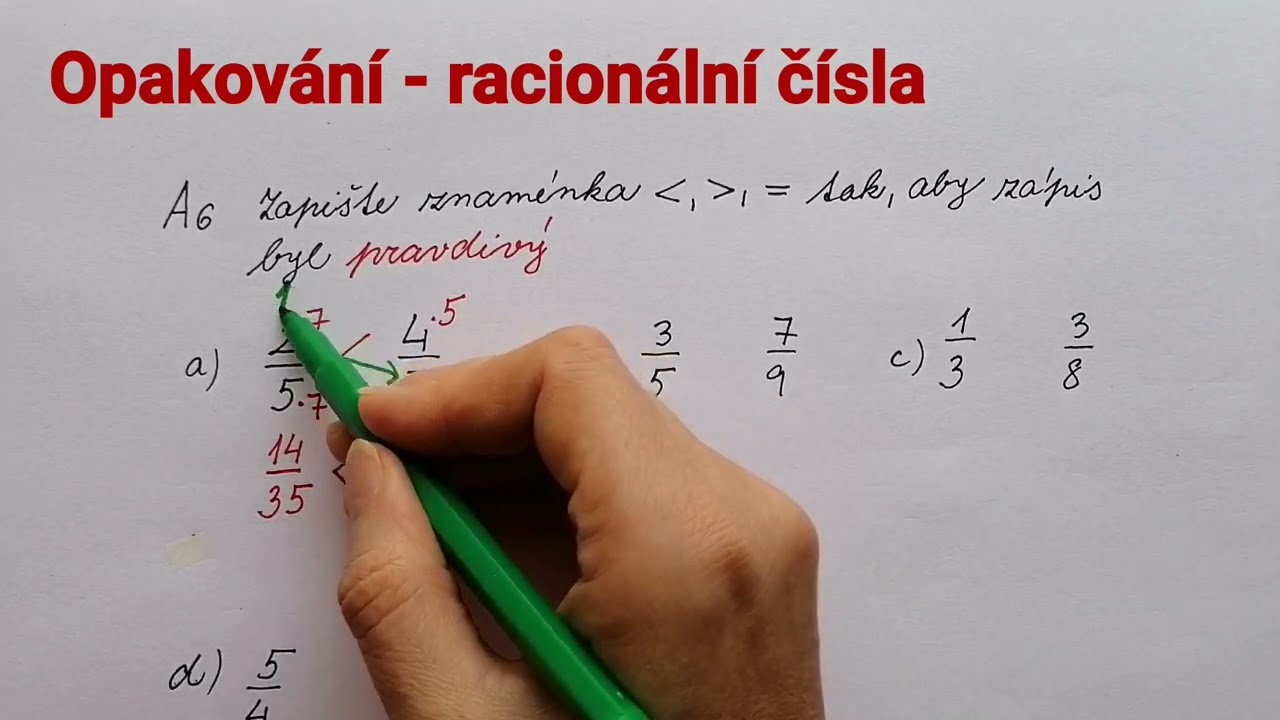 Opakování - racionální čísla
A6 Zapište znaménka <, >, = tak, aby zápis
byl pravdivý
a) 2/5 ·7 ·7 < 4 ·5 3/5 7/9 c) 1/3 3/8
14/35 <
d) 5/4